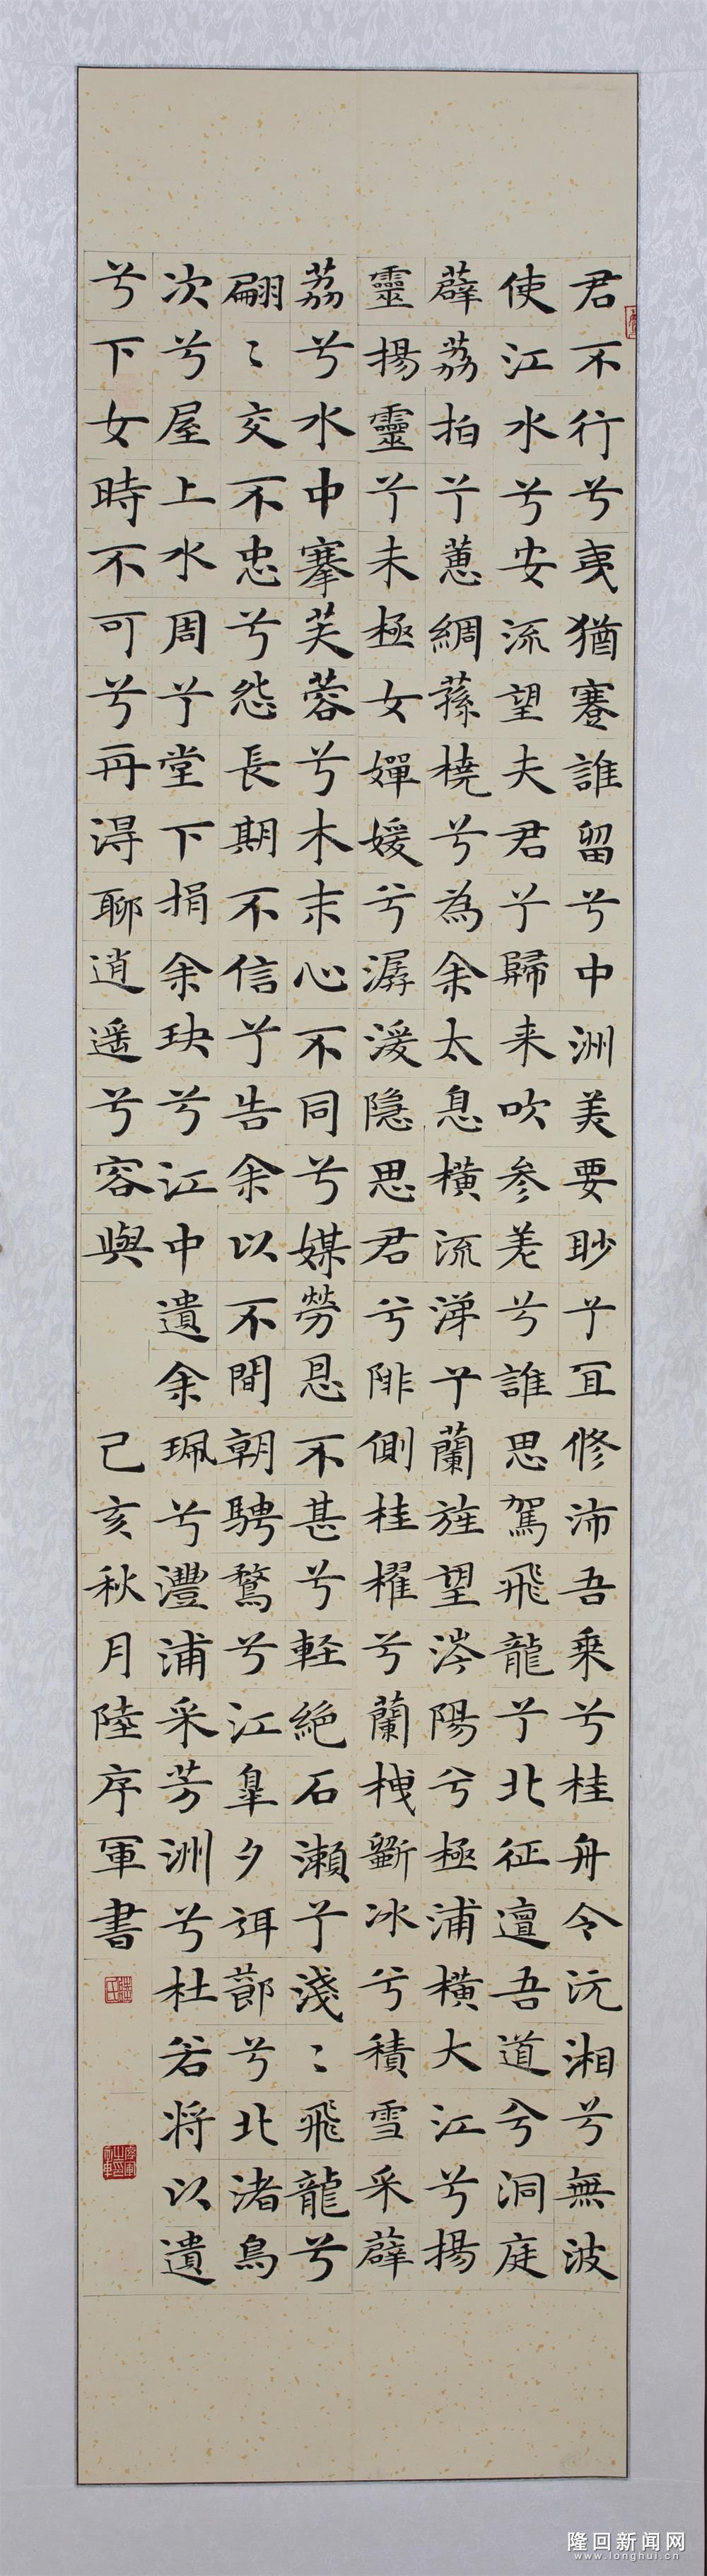 君不行兮夷猶蹇誰留兮中洲美要眇兮宜修沛吾乗兮桂舟令沅湘兮無波
使江水兮安流望夫君兮歸来吹參差兮誰思駕飛龍兮北征邅吾道兮洞庭
薜荔拍兮蕙綢蓀橈兮為余太息橫流涕兮蘭旌望涔陽兮極浦橫大江兮揚
靈揚靈兮未極女嬋媛兮潺湲隐思君兮陫側桂櫂兮蘭枻斵冰兮積雪采薜
荔兮水中搴芙蓉兮木末心不同兮媒勞恩不甚兮軽絶石瀨兮淺〻飛龍兮
翩〻交不忠兮怨長期不信兮告余以不間朝騁騖兮江臯夕弭節兮北渚鳥
次兮屋上水周兮堂下捐余玦兮江中遺余珮兮澧浦采芳洲兮杜若将以遺
兮下女時不可兮再得聊逍遥兮容與 己亥秋月陸序軍書
隆回新闻网
www.longhui.cn